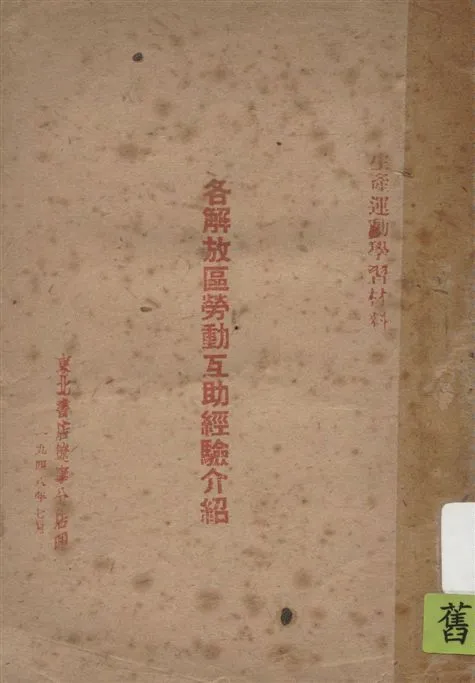 生產運動學習材料
各解放區勞動互助經驗介紹
東北書店遼寧分店印
一九四八年七月
舊